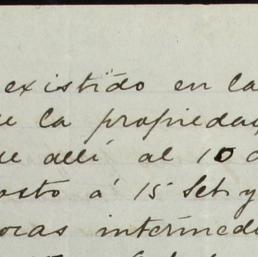 existido en la
e la propiedad
ue allí al 10 d
osto á 15 Set y
oras intermed